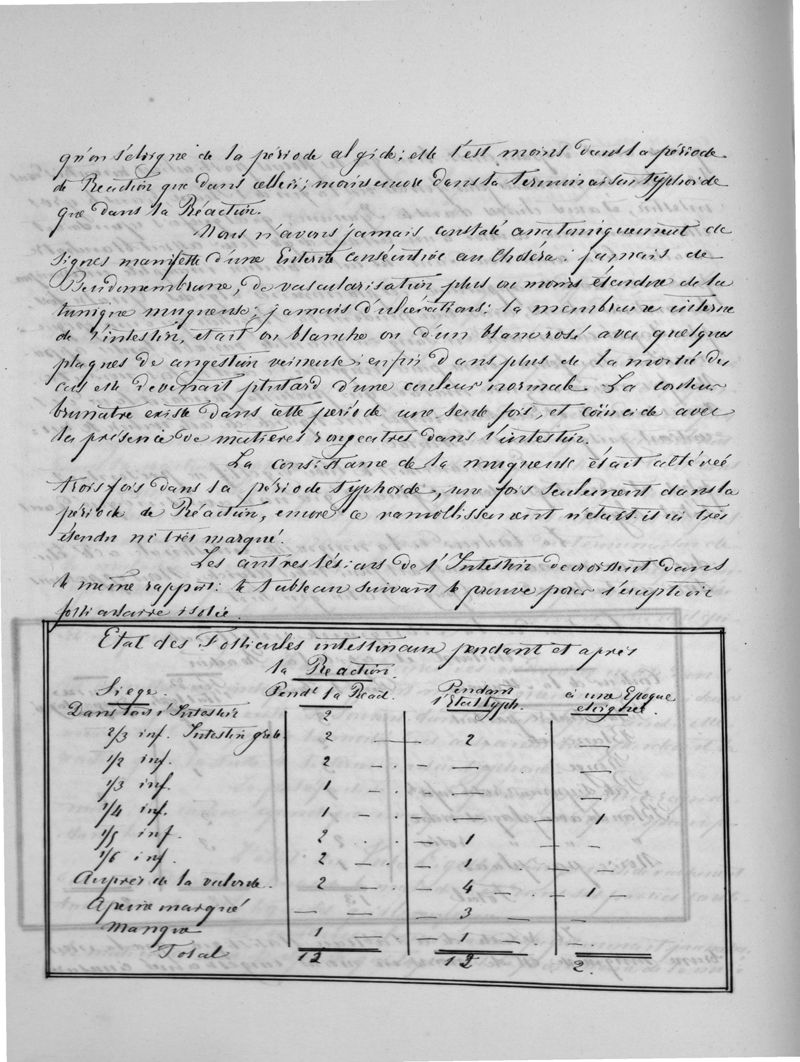 qu'on s'éloigne de la période algide; elle l'est moins dans la période
de Réaction que dans celle ci; moins encore dans la terminaison typhoïde
que dans la Réaction.
Nous n'avons jamais constaté anatomiquement de
signes manifeste d'une Entérite consécutive au Choléra: jamais de
de vascularisation plus ou moins étendue de la
tunique muqueuse; jamais d'ulcérations; la membrane interne
de l'intestin, était ou blanche ou d'un blanc rosé avec quelques
plaques de congestion veineuse: enfin dans plus de la moitié des
cas elle devenait plutard d'une couleur normale. La couleur
brunâtre existe dans cette période une seule fois, et coïncide avec
la présence de matières rougeatres dans l'intestin.
La consistance de la muqueuse était altérée
trois fois dans la période typhoïde, une fois seulement dans la
période de Réaction, encore ce ramollissement n'était il ni très
étendu ni très marqué.
Les autres lésions de l'Intestin décroissent dans
le même rapport: le tableau suivant le prouve pour l'éruption
isolée.
Etat des Follicules intestinaux pendant et après
la Réaction.
Siège. Pendt la Réact. Pendant l'Etat typh. à une Epoque eloignée.
Dans tout l'Intestin 2
2/3 inf. Intestin grêle. 2 — — 2 —
1/2 inf. 2 — — — —
1/3 inf. 1 — — — —
1/4 inf. 1 — — — 1
1/5 inf. 2 . . — 1
1/6 inf. 2 — . — 1 —
Auprès de la valvule. 2 — — 4 — 1 —
A peine marqué — — — 3 — —
Manque 1 — — 1 — . —
Total 12 12 2.